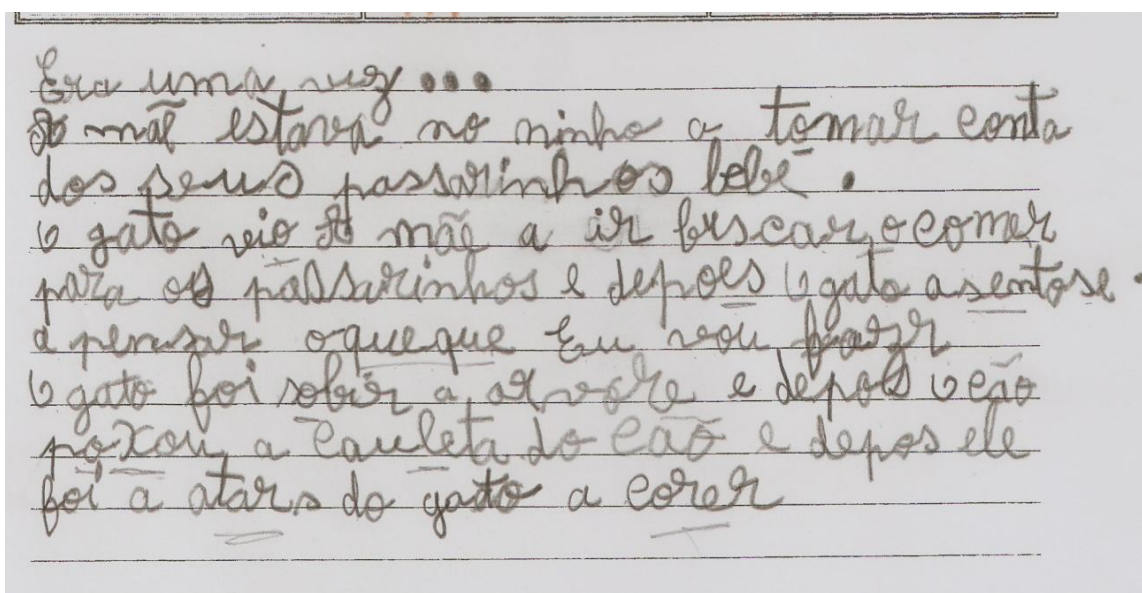 Era uma vez...
A mãe estava no ninho a tomar conta
dos seus passarinhos bebé.
O gato veio A mãe a ir buscar, o comer
para os passarinhos e depoes o gato asentose
a pensar oqueque Eu vou fazer
O gato foi sobir a arvore e depois o cão
poxou a cauleta do cão e depos ele
foi a atars do gato a corer